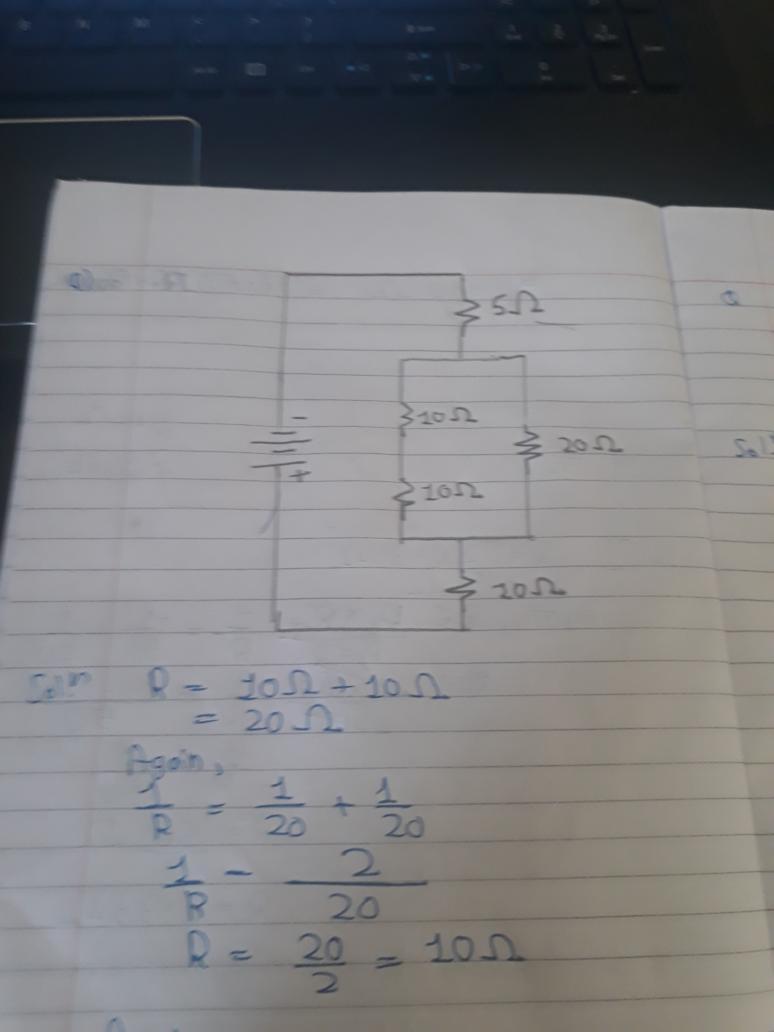 5Ω
-
10Ω
20Ω
+
10Ω
10Ω
Solⁿ R = 10Ω + 10Ω
= 20Ω
Again,
1/R = 1/20 + 1/20
1/R - 2/20
R = 20/2 = 10Ω
Q